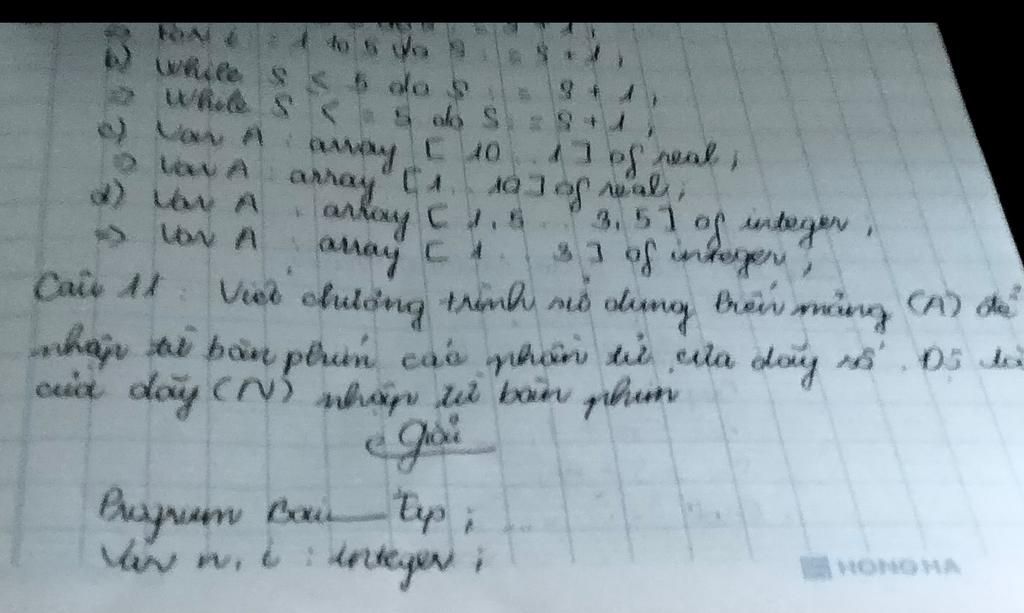 => For i := 1 to 5 do S := S + 1;
b) While S < 5 do S := S + 1;
=> While S <= 5 do S := S + 1;
c) Var A : array [ 10 .. 1 ] of real;
=> Var A : array [ 1 .. 10 ] of real;
d) Var A : array [ 1,5 .. 3,5 ] of integer;
=> Var A : array [ 1 .. 3 ] of integer;
Câu 11: Viết chương trình sử dụng biến mảng (A) để
nhập từ bàn phím các phần tử của dãy số. Độ
của dãy (N) nhập từ bàn phím
Giải
Program Bai_Tap;
Var n, i : integer;
HONG HA